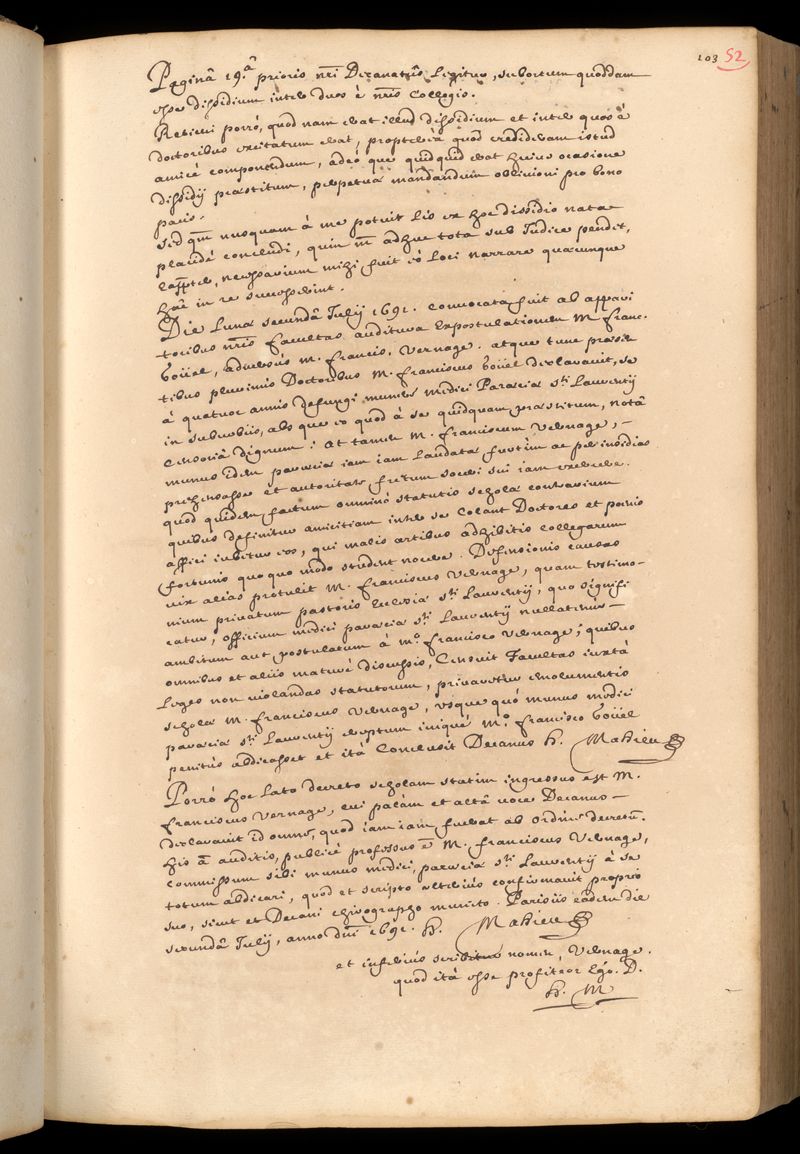 103 52
Paginâ 19.â prioris nr̃i Decanatûs legitur, subortum quoddam
esse dissidium inter duos è nr̃is Collegis.
Reticui porrò, quod nam erat illud dissidium et inter quos è
doctoribus excitatum erat, proptereà quod credideram istud
amicè componendum, adeò que quidquid erat huius ocasione
dissidij præstitum, perpetuæ mandandum oblivioni pro bono
pacis.
Sed qm̃ nusquam à me potuit lis ex hoc dissidio nata
placidè concludi, quin m̃ adhuc tota sub Judice pendet,
necessarium mihi fuit eò loci narrare quæcunque
hâc in re successerint.
Die Lunæ secundâ Julij 1691. convocata fuit ab appari
toribus nr̃is facultas auditura expostulationem M. franc.
boüel, adversùs M. francis. Vernage. atque tunc præsen
tibus plurimis Doctoribus M. franciscus boüel declaravit, se
à quatuor annis defungi munere medici Paræciæ s.ti Laurentij
in suburbiis, abs que eo quod à se quidquam præstitum, notâ
Censoriâ dignum: at tamen M. franciscum Vernage,
munus idem paræciæ iam iam laudatæ furtìm ac per insidias
prehensasse et autoritate fretum soceri sui iam exercere.
quod quidem factum omninò statutis scholæ contrarium
quibus definitur amicitiam inter se colant Doctores et pœnis
affici iubetur eos, qui malis artibus adhibitis collegarum
fortunis quoquo modo student nocere. Defensionis causas
vix alias protulit M. franciscus Vernage, quam testimo-
nium privatum pastoris Ecclesiæ s.ti Laurentij, quo signifi
catur, officium medici paræciæ s.ti Laurentij nullatenùs
ambitum aut postulatum à M.o francisco Vernage; quibus
omnibus et aliis maturè discussis, Censuit Facultas iuxtà
leges non violandas statutorum, privaretur emolumentis
scholæ M. franciscus Vernage, usque quò munus medici
paræciæ s.ti Laurentij ereptum iniquè M.o francisco boüel
penitùs abdicasset et ità Conclusit Decanus h. Mahieu
Porrò hoc lato decreto scholam statim ingressus est M.
franciscus Vernage, cui palàm et altâ voce Decanus
declaravit id omne, quod iam iam fuerat ab ordine decretũ.
his ã auditis, publicè professus ẽ M. franciscus Vernage,
Commissum sibi munus medici, paræciæ s.ti Laurentij à se
totum abdicari, quod et scripto ulteriùs confirmavit proprio
suo, sicut et Decani chirographo munito. Parisiis eâdem die
secundâ Julij, anno dnĩ 1691. h. Mahieu
et inferiùs scribitur nomen, Vernage.
quod ità esse profiteor Ego. D.
h. M